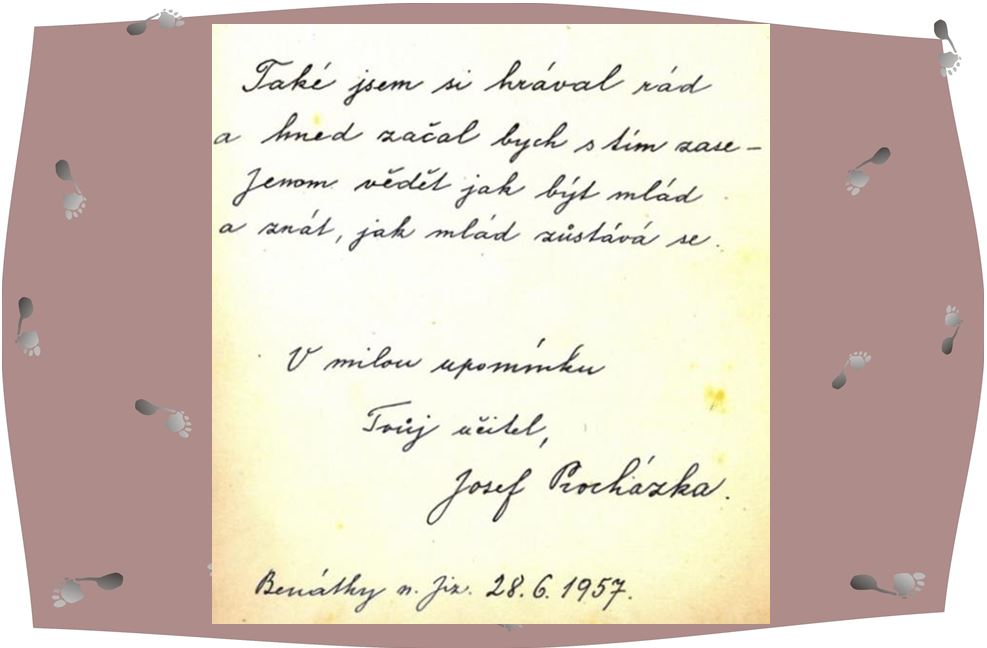 Také jsem si hrával rád
a hned začal bych s tím zase –
Jenom vědět jak být mlád
a znát, jak mlád zůstává se.
V milou upomínku
Tvůj učitel,
Josef Procházka.
Benátky n. Jiz. 28.6.1957.